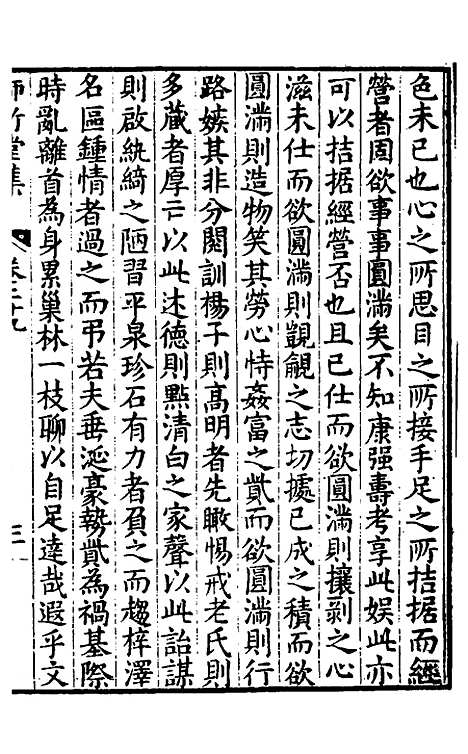 色未已也心之所思目之所接手足之所拮据而經
營者固欲事事圓滿矣不知康强壽考享此娱此亦
可以拮据經營否也且已仕而欲圓滿則攘剥之心
滋未仕而欲圓滿則覬覦之志切據已成之積而欲
圓滿則造物笑其勞心恃姦富之貲而欲圓滿則行
路嫉其非分閱訓楊子則髙明者先瞰惕戒老氏則
多蔵者厚亡以此述德則㸃清白之家聲以此詒謀
則啟紈綺之陋習平泉珍石有力者負之而趨梓澤
名區鍾情者過之而弔若夫垂涎豪勢貲為禍基際
時亂離首為身累巢林一枝聊以自足達哉遐乎文
師竹堂集
卷三十九
三